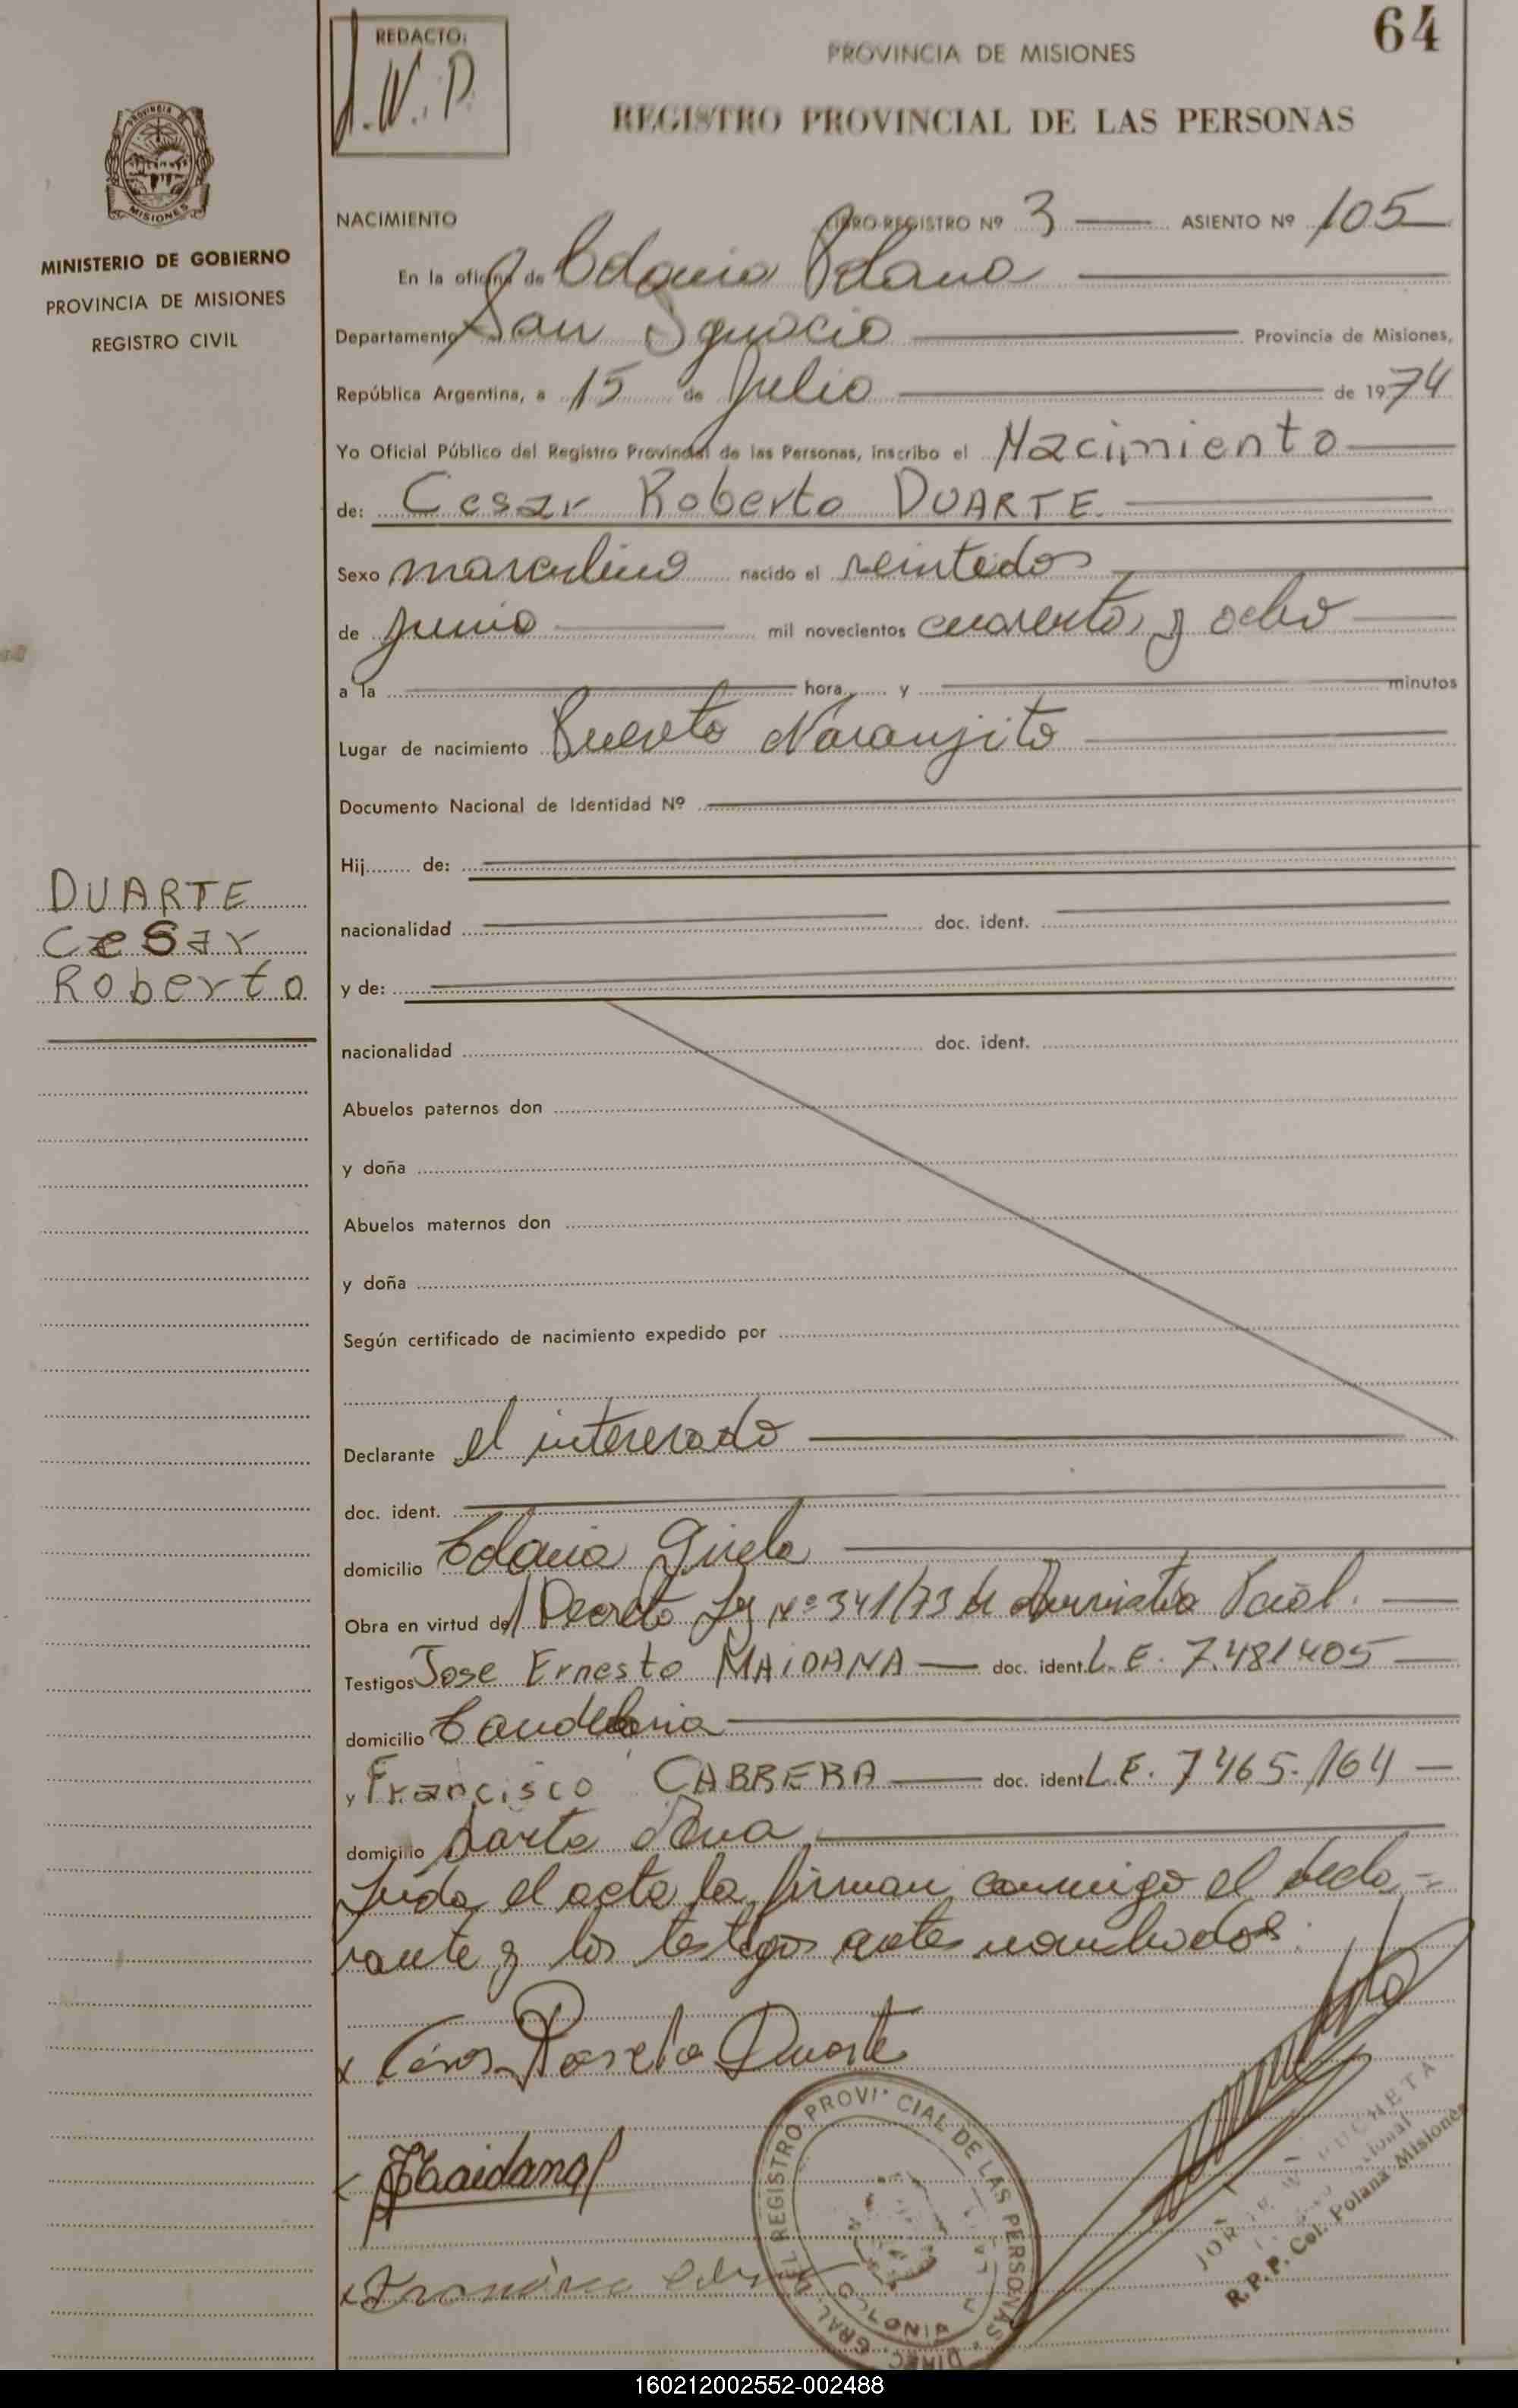 64
REDACTO:
J.W.P.
PROVINCIA DE MISIONES
REGISTRO PROVINCIAL DE LAS PERSONAS
PROVINCIA
MISIONES
MINISTERIO DE GOBIERNO
PROVINCIA DE MISIONES
REGISTRO CIVIL
NACIMIENTO LIBRO REGISTRO Nº 3 ASIENTO Nº 105
En la oficina de Colonia Polana
Departamento San Ignacio Provincia de Misiones,
República Argentina, a 15 de Julio de 1974
Yo Oficial Público del Registro Provincial de las Personas, inscribo el Nacimiento
de: Cesar Roberto DUARTE
Sexo masculino nacido el veintedos
de junio mil novecientos cuarenta y ocho
a la hora y minutos
Lugar de nacimiento Puerto Naranjito
Documento Nacional de Identidad Nº
Hij de:
nacionalidad doc. ident.
DUARTE
Cesar
Roberto
y de:
nacionalidad doc. ident.
Abuelos paternos don
y doña
Abuelos maternos don
y doña
Según certificado de nacimiento expedido por
Declarante el interesado
doc. ident.
domicilio Colonia Gisela
Obra en virtud del Decreto Ley Nº 341/73 de Amnistia
Testigos Jose Ernesto MAIDANA doc. ident. L.E. 7.481405
domicilio Candelaria
y Francisco CABRERA doc. ident L.E. 7465.164
domicilio Santa Ana
Leida el acta la firman conmigo el decla=
rante y los testigos antes nombrados.
x Cesar Roberto Duarte
Maidana
x Francisco
DIREC. GRAL. DEL REGISTRO PROVINCIAL DE LAS PERSONAS
COLONIA
JORGE W.
R.P.P. Col. Polana Misiones
160212002552-002488